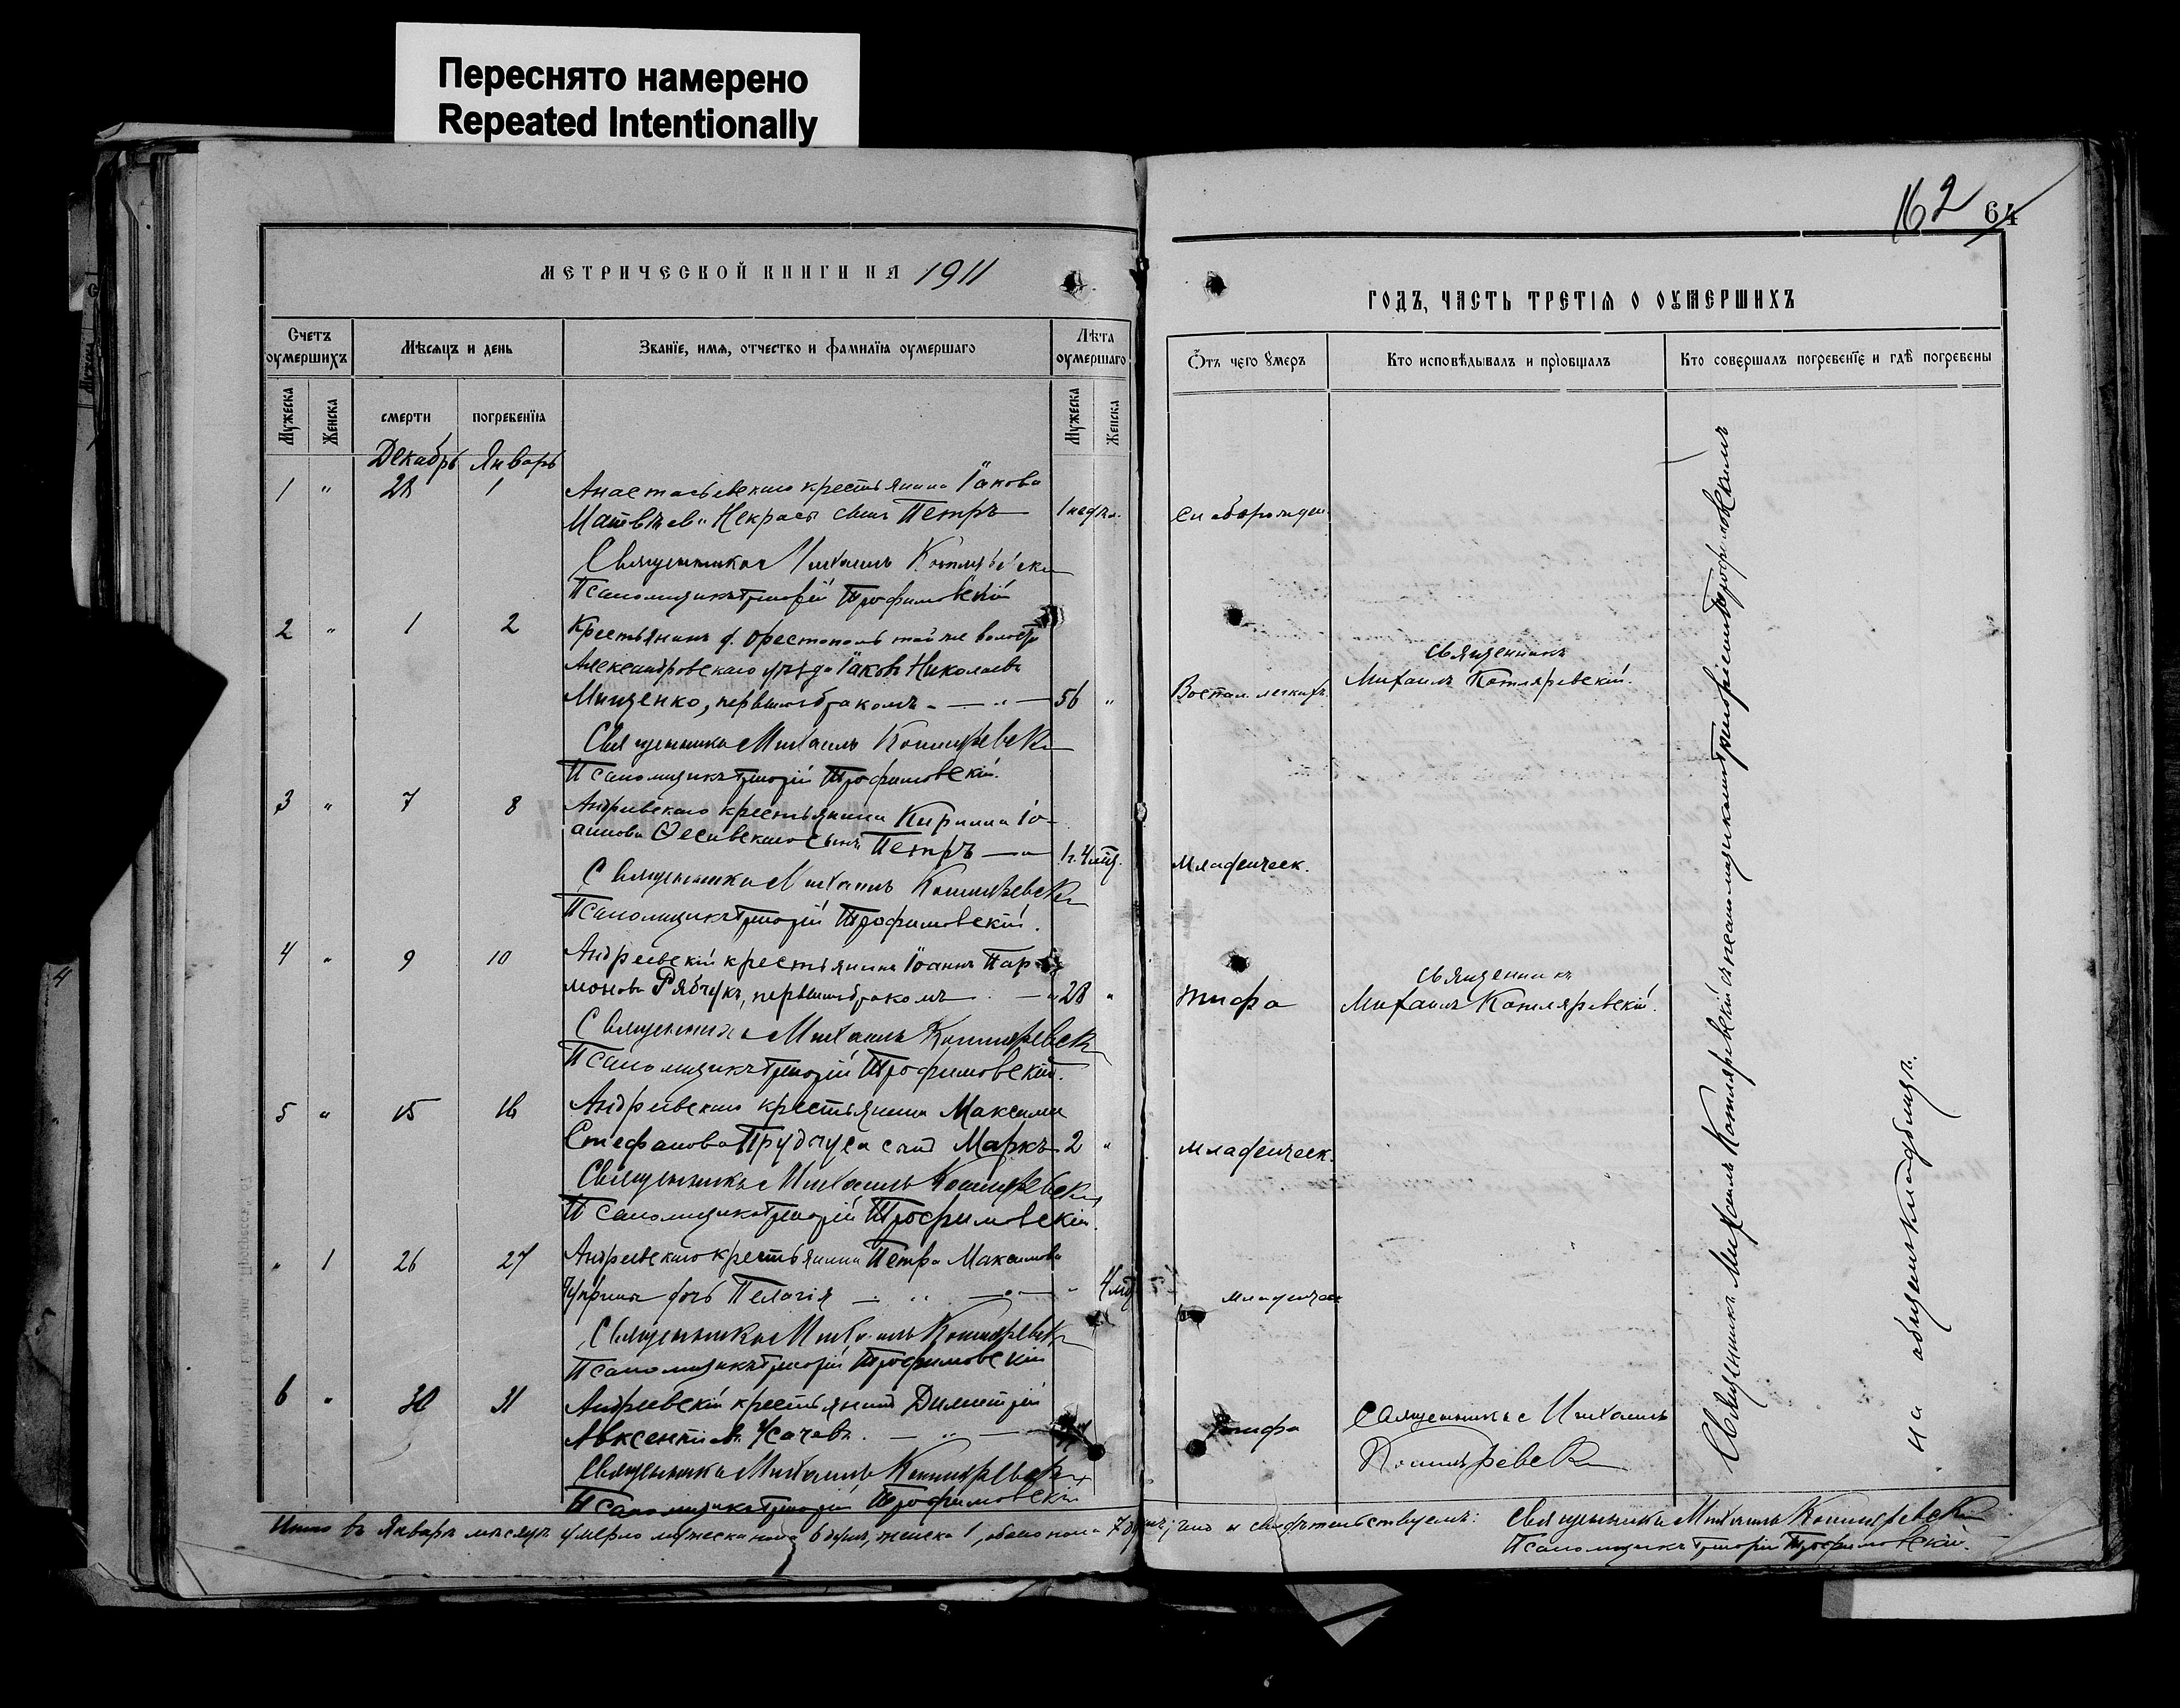 Переснято намерено
Repeated Intentionally
162 64
МЕТРИЧЕСКОЙ КНИГИ НА 1911
ГОДЪ, ЧАСТЬ ТРЕТІѦ О ОУМЕРШИХЪ
Счетъ оумершихъ
Мѣсяцъ и день
Званіе, имя, отчество и фамилія оумершаго
Лѣта оумершаго
Ѿтъ чего ꙋмеръ
Кто исповѣдывалъ и пріобщалъ
Кто совершалъ погребеніе и гдѣ погребены
Мужеска
Женска
смерти
погребенія
Мужеска
Женска
Декабрь Январь
1 " 28 1 Анастасьевскаго крестьянина Іакова
Матвѣева Некрасы сынъ Петръ 1 недѣл. Слаборожден.
Священникъ Михаилъ Котляревскій
Псаломщикъ Григорій Трофимовскій
2 " 1 2 Крестьянинъ д. Орестополь той же волости
Александровскаго уѣзда Іаковъ Николаевъ
Мищенко, первымъ бракомъ 56 " Воспал. легкихъ
Священникъ
Михаилъ Котляревскій.
Священникъ Михаилъ Котляревскій
Псаломщикъ Григорій Трофимовскій.
3 " 7 8 Андреевскаго крестьянина Кирилла Іо-
аннова сынъ Петръ 1 г. 4 мѣс. Младенческ.
Священникъ Михаилъ Котляревскій
Псаломщикъ Григорій Трофимовскій.
4 " 9 10 Андреевскій крестьянинъ Іоаннъ Пар-
моновъ Рябчукъ, первымъ бракомъ 28 " тифа
Священникъ
Михаилъ Котляревскій.
Священникъ Михаилъ Котляревскій
Псаломщикъ Григорій Трофимовскій.
5 " 15 16 Андреевскаго крестьянина Максима
Стефанова сынъ Маркъ 2 " младенческ.
Священникъ Михаилъ Котляревскій
Псаломщикъ Григорій Трофимовскій.
" 1 26 27 Андреевскаго крестьянина Петра Максимова
Чуприны дочь Пелагія " 4 мѣс. младенческ
Священникъ Михаилъ Котляревскій
Псаломщикъ Григорій Трофимовскій
6 " 30 31 Андреевскій крестьянинъ Димитрій
Авксентіевъ Усачевъ. тифа
Священникъ Михаилъ
Котляревскій
Священникъ Михаилъ Котляревскій
Псаломщикъ Григорій Трофимовскій
Священникъ Михаилъ Котляревскій съ псаломщикомъ Григоріемъ Трофимовскимъ
на общемъ кладбищѣ.
Итого въ Январѣ мѣсяцѣ умерло мужеска пола 6 душъ, женска 1, обоего пола 7 душъ; что и свидѣтельствуемъ: Священникъ Михаилъ Котляревскій
Псаломщикъ Григорій Трофимовскій.